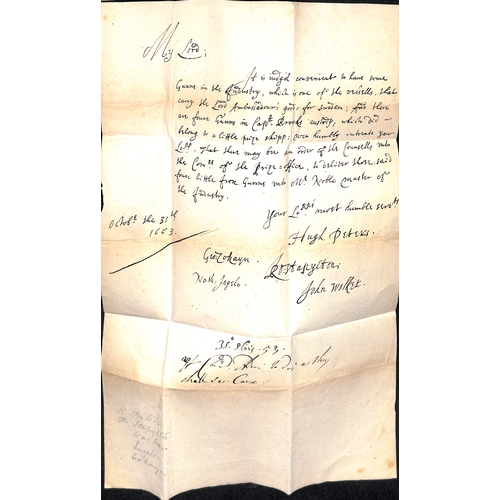 My Lord;
It is judged convenient to have some
Gunns in the Industry, which is one of the vessells, that
carry the Lord Ambassadours goods for Sweden; And there
are foure Gunns in Capt. Brooks custody, which did
belong to a little prize shipp; wee humbly intreate your
Lopp. That there may be an order of the Counsells unto
the Comrs. of the prize-office, to deliver those said
foure little Iron Gunns unto Mr. Noble master of
the Industry.
Your Lopps most humble servts
Octobr. the 31th
1653.
Hugh Peters.
Geo: Cokayn.
Robt Stapylton
Nath: Ingelo.
John Walker.
31° 8bris 53.
shall see Cause